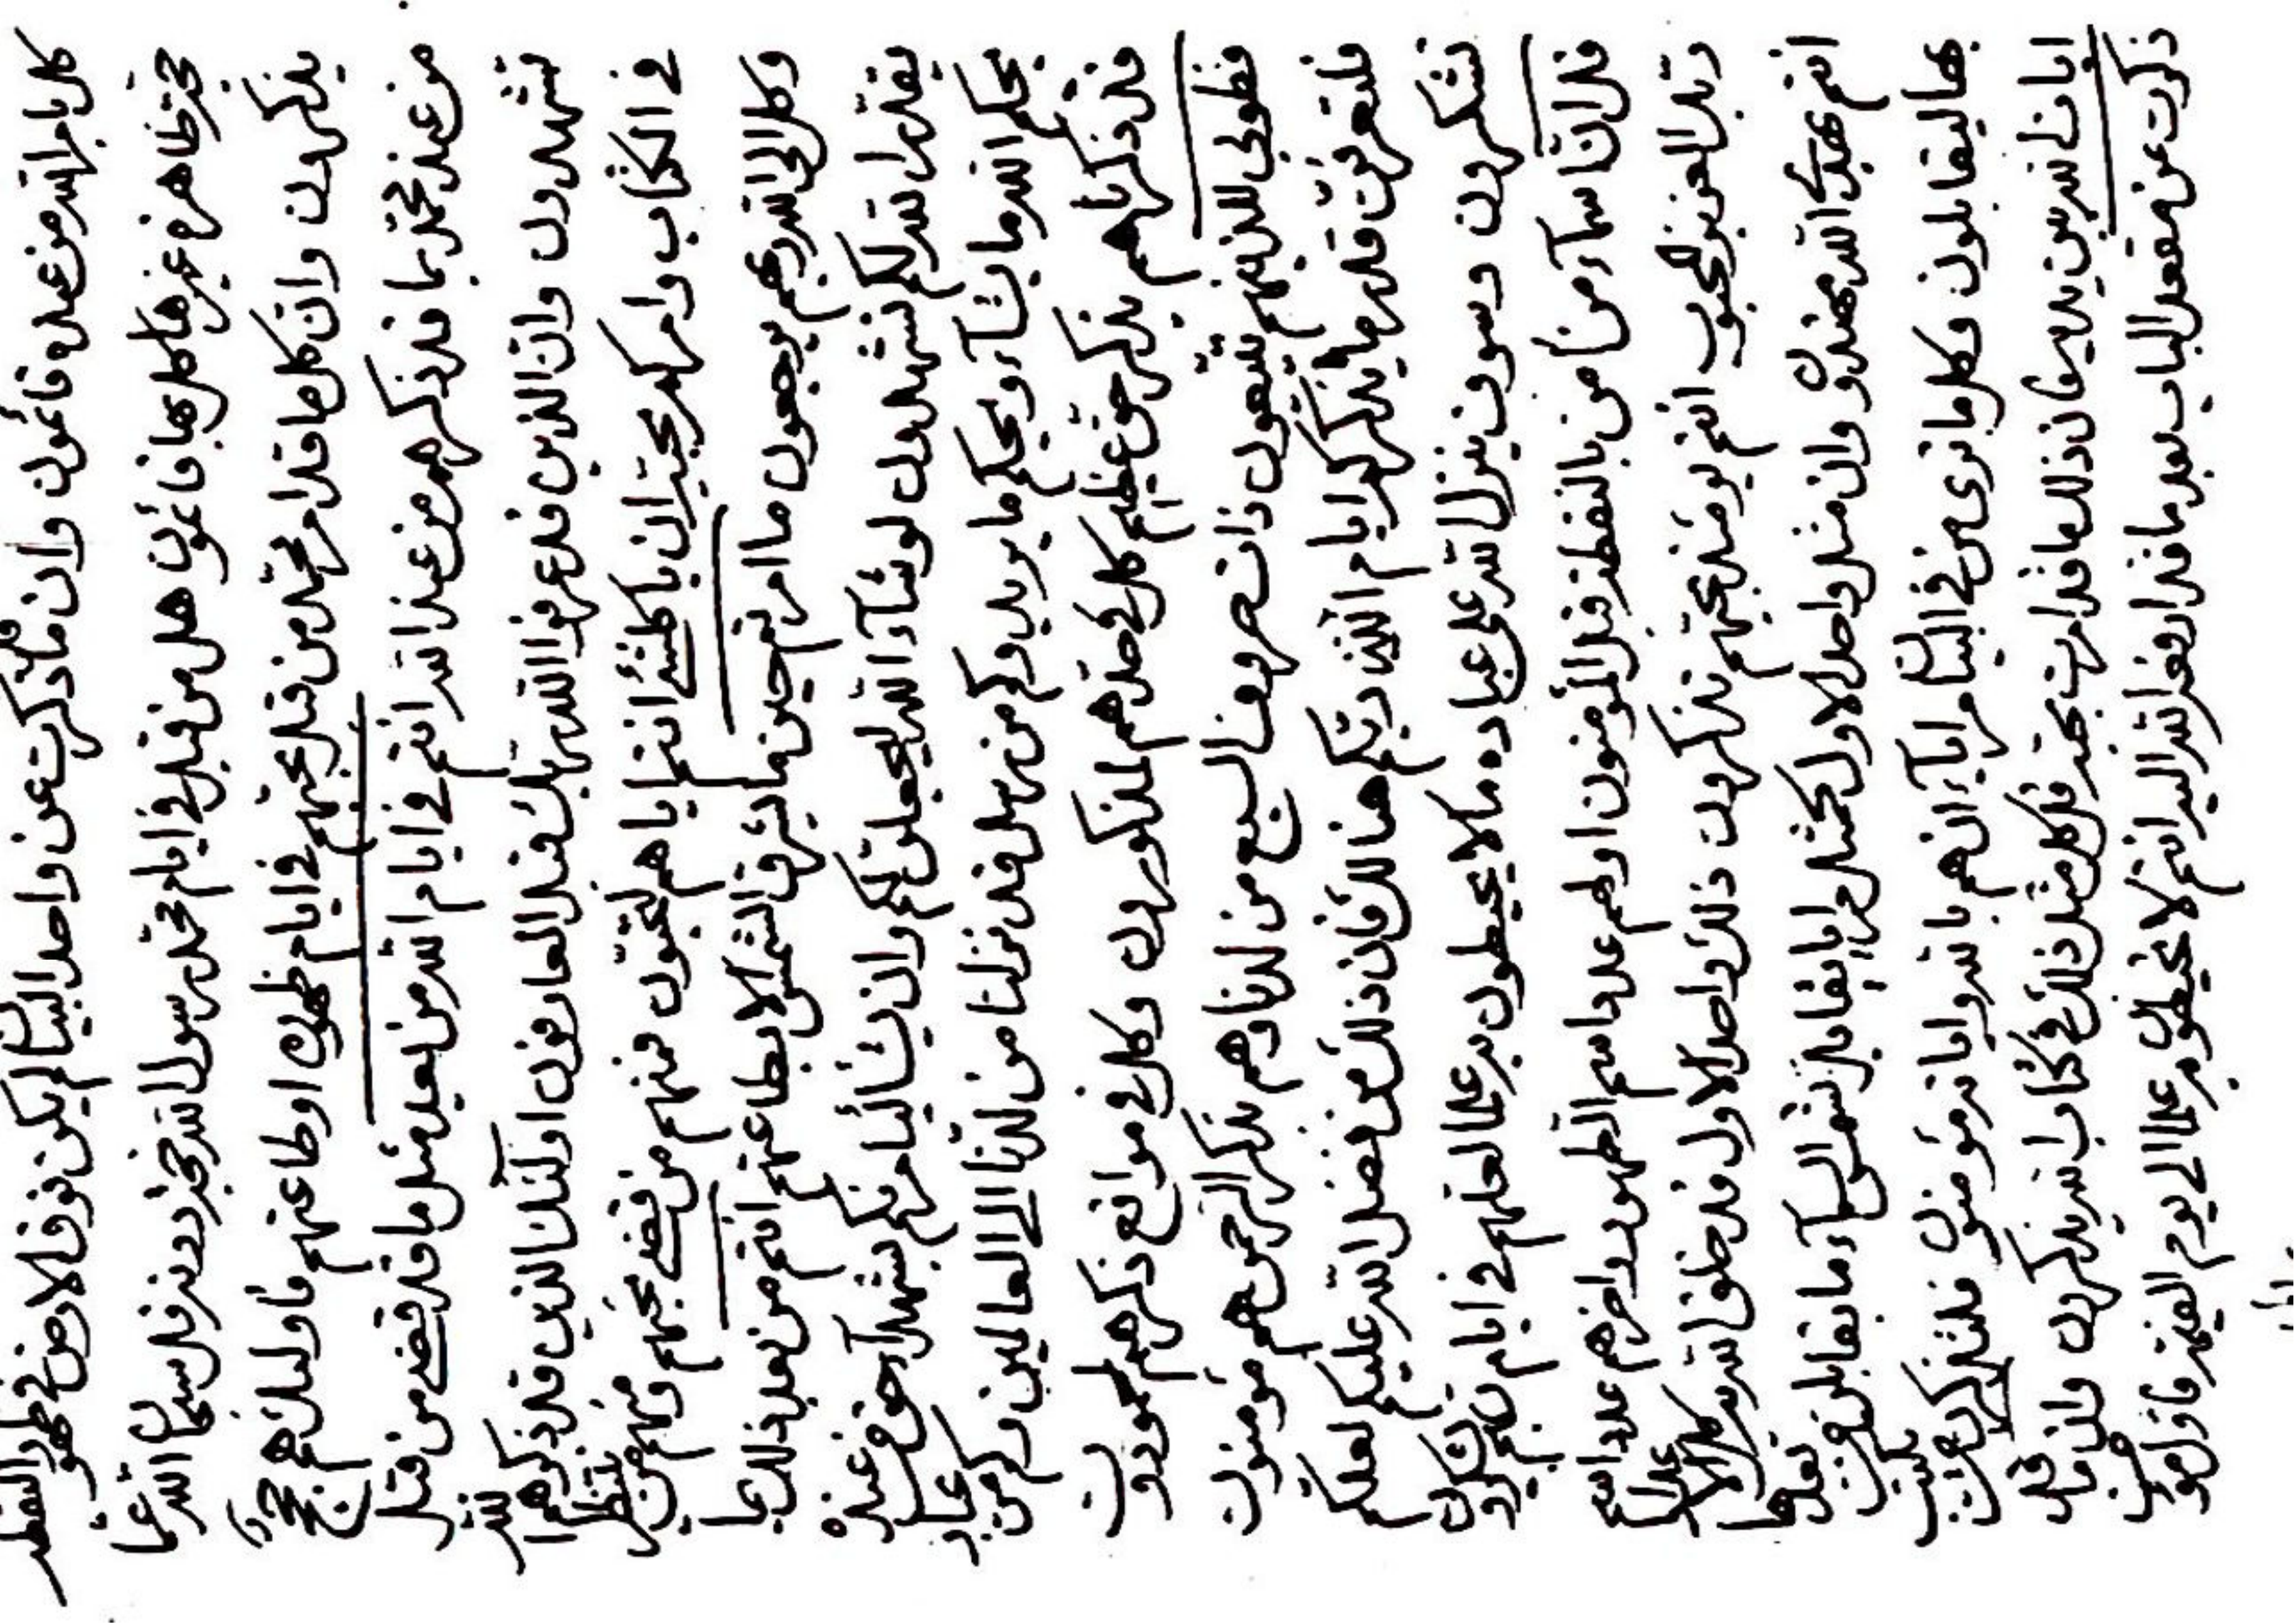 كل بامر الله من عنده قائمون وان ما قد ذكرت عن واحد البيان لم يكن فوق الارض في ظهور النقطه
حجة ظاهرة غيرها كل بها قائمون هل من قبل في ايام محمد رسول الله حجة دونه قل سبحان الله عما
يذكرون وان كل ما قد امر محمد من قبل بحبهم في ايام ظهوره او طاعتهم فاولئك هم حجج
من عند محمد بما قد ذكرهم من عند الله انتم في ايام الله من بعد مثل ما قد قضى من قبل
تشهدون وان الذين قد عرفوا الله العارفون اولئك الذين قد ذكرهم الله
في الكتاب وامركم ان يا كلشئ انتم اياهم لتحبون فمنهم من قضى نحبهم ومنهم من ينتظر
وكل الى الله ربهم يرجعون ما امرتم حين ما يشرق الشمس الا بطاعتهم انتم من بعد ذلك بما
يقدر الله لكم تشهدون لو شاء الله ليجعلنكم وان يشأ ليأمرنكم بشهداء اخر من عنده
يحكم الله ما يشاء ويحكم ما يريد وكم من سبل قد نزلنا من لدنا الى العالمين وكم من عباد
قد ذكرناهم بذكر حق عظيم كل في حدهم لمذكورون وكل في مواقع ذكرهم لمحمودون
فطوبى للذينهم يتبعون ذات حروف السبع من لدنا وهم بذكر الرحمن هم مؤمنون
فلتعرفن قدر ما يذكركم ايام الله ربكم هنالك فان ذلك من فضل الله عليكم لعلكم
تشكرون وسوف ينزل الله على عباده ما لا يحيطون به علما لعلهم في ايام ربهم يشكرون
قل ان اسماء من امن بالنقطة قبل المؤمنون اولهم عدد اسم الظهور واخرهم عدد اسم
ربك العزيز المحبوب انتم يومئذ بحبهم تذكرون ذلك واحد الاول قد خلق الله به كل
انتم بهدى الله مهتدون وان مثل واحد الاول كمثل مرايا يقابل شمس السماء ما يقابلن من بعدها
بها ليقابلون وكل ما ترى من في البيان مرايا انهم بالله واياته مؤمنون فلتذكرن من يكتب
ايات الله بين يديه فان ذلك ما قد امرت بحبه قل كل مثل ذلك في كتاب الله يذكرون وان ما قد
ذكرت عن مقعد الباب بعد ما قد ارفع الله اليه انتم لا تحيطون به علما الى يوم القيمة فاول مؤمن